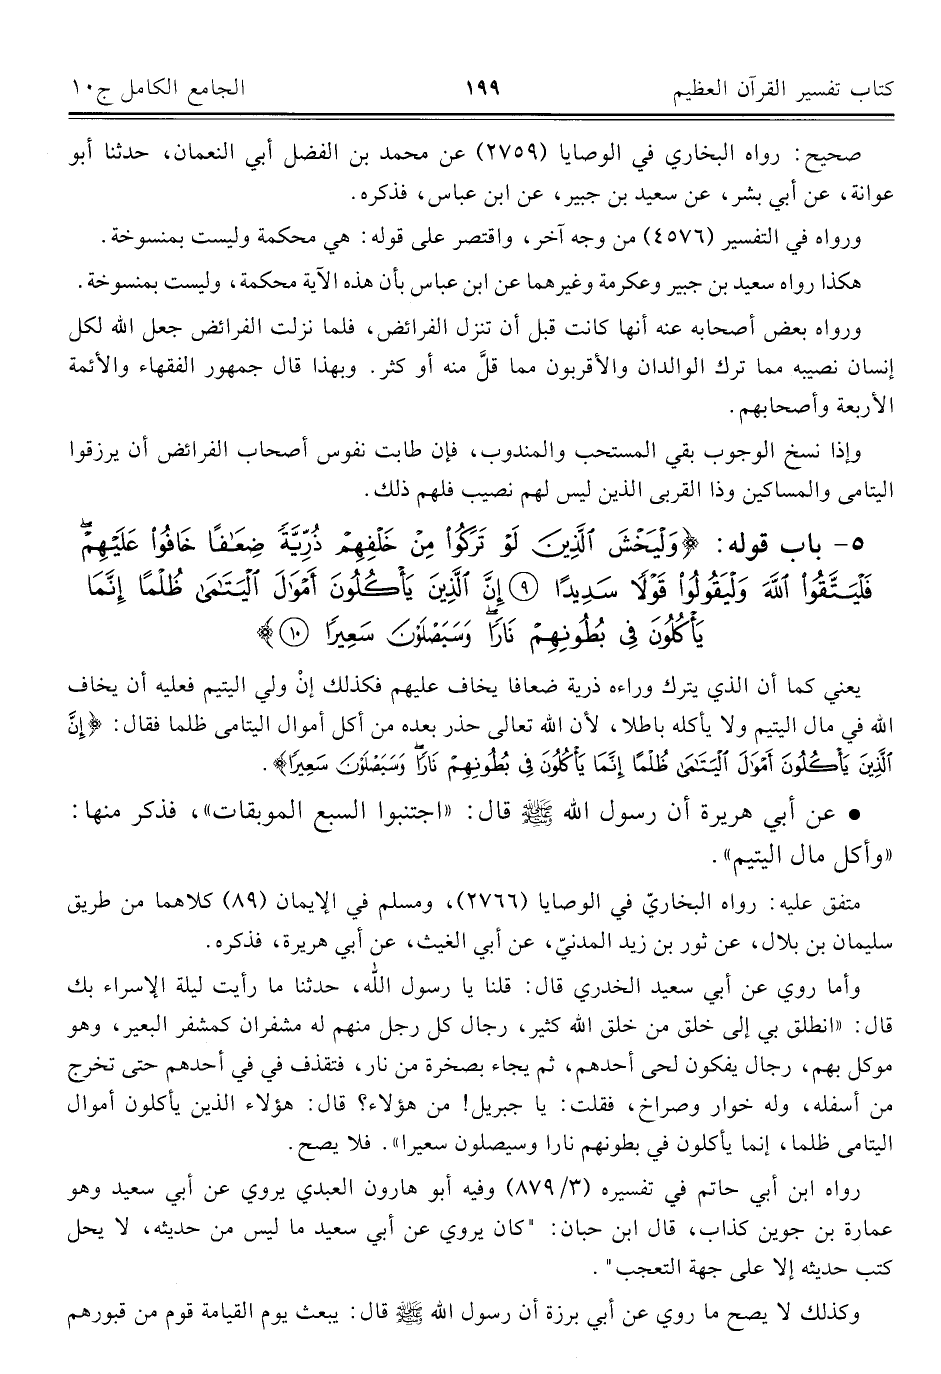 كتاب تفسير القرآن العظيم ١٩٩ الجامع الكامل ج١٠
صحيح: رواه البخاري في الوصايا (٢٧٥٩) عن محمد بن الفضل أبي النعمان، حدثنا أبو
عوانة، عن أبي بشر، عن سعيد بن جبير، عن ابن عباس، فذكره.
ورواه في التفسير (٤٥٧٦) من وجه آخر، واقتصر على قوله: هي محكمة وليست بمنسوخة.
هكذا رواه سعيد بن جبير وعكرمة وغيرهما عن ابن عباس بأن هذه الآية محكمة، وليست بمنسوخة.
ورواه بعض أصحابه عنه أنها كانت قبل أن تنزل الفرائض، فلما نزلت الفرائض جعل الله لكل
إنسان نصيبه مما ترك الوالدان والأقربون مما قلَّ منه أو كثر. وبهذا قال جمهور الفقهاء والأئمة
الأربعة وأصحابهم.
وإذا نسخ الوجوب بقي المستحب والمندوب، فإن طابت نفوس أصحاب الفرائض أن يرزقوا
اليتامى والمساكين وذا القربى الذين ليس لهم نصيب فلهم ذلك.
٥- باب قوله: ﴿وَلْيَخْشَ ٱلَّذِينَ لَوْ تَرَكُوا۟ مِنْ خَلْفِهِمْ ذُرِّيَّةً ضِعَٰفًا خَافُوا۟ عَلَيْهِمْ ۖ
فَلْيَتَّقُوا۟ ٱللَّهَ وَلْيَقُولُوا۟ قَوْلًا سَدِيدًا ٩ إِنَّ ٱلَّذِينَ يَأْكُلُونَ أَمْوَٰلَ ٱلْيَتَٰمَىٰ ظُلْمًا إِنَّمَا
يَأْكُلُونَ فِى بُطُونِهِمْ نَارًا ۖ وَسَيَصْلَوْنَ سَعِيرًا ١٠﴾
يعني كما أن الذي يترك وراءه ذرية ضعافا يخاف عليهم فكذلك إنْ ولي اليتيم فعليه أن يخاف
الله في مال اليتيم ولا يأكله باطلا، لأن الله تعالى حذر بعده من أكل أموال اليتامى ظلما فقال: ﴿إِنَّ
ٱلَّذِينَ يَأْكُلُونَ أَمْوَٰلَ ٱلْيَتَٰمَىٰ ظُلْمًا إِنَّمَا يَأْكُلُونَ فِى بُطُونِهِمْ نَارًا ۖ وَسَيَصْلَوْنَ سَعِيرًا﴾.
• عن أبي هريرة أن رسول الله ﷺ قال: «اجتنبوا السبع الموبقات»، فذكر منها:
«وأكل مال اليتيم».
متفق عليه: رواه البخاريّ في الوصايا (٢٧٦٦)، ومسلم في الإيمان (٨٩) كلاهما من طريق
سليمان بن بلال، عن ثور بن زيد المدنيّ، عن أبي الغيث، عن أبي هريرة، فذكره.
وأما روي عن أبي سعيد الخدري قال: قلنا يا رسول الله، حدثنا ما رأيت ليلة الإسراء بك
قال: «انطلق بي إلى خلق من خلق الله كثير، رجال كل رجل منهم له مشفران كمشفر البعير، وهو
موكل بهم، رجال يفكون لحى أحدهم، ثم يجاء بصخرة من نار، فتقذف في في أحدهم حتى تخرج
من أسفله، وله خوار وصراخ، فقلت: يا جبريل! من هؤلاء؟ قال: هؤلاء الذين يأكلون أموال
اليتامى ظلما، إنما يأكلون في بطونهم نارا وسيصلون سعيرا». فلا يصح.
رواه ابن أبي حاتم في تفسيره (٨٧٩/٣) وفيه أبو هارون العبدي يروي عن أبي سعيد وهو
عمارة بن جوين كذاب، قال ابن حبان: "كان يروي عن أبي سعيد ما ليس من حديثه، لا يحل
كتب حديثه إلا على جهة التعجب".
وكذلك لا يصح ما روي عن أبي برزة أن رسول الله ﷺ قال: يبعث يوم القيامة قوم من قبورهم